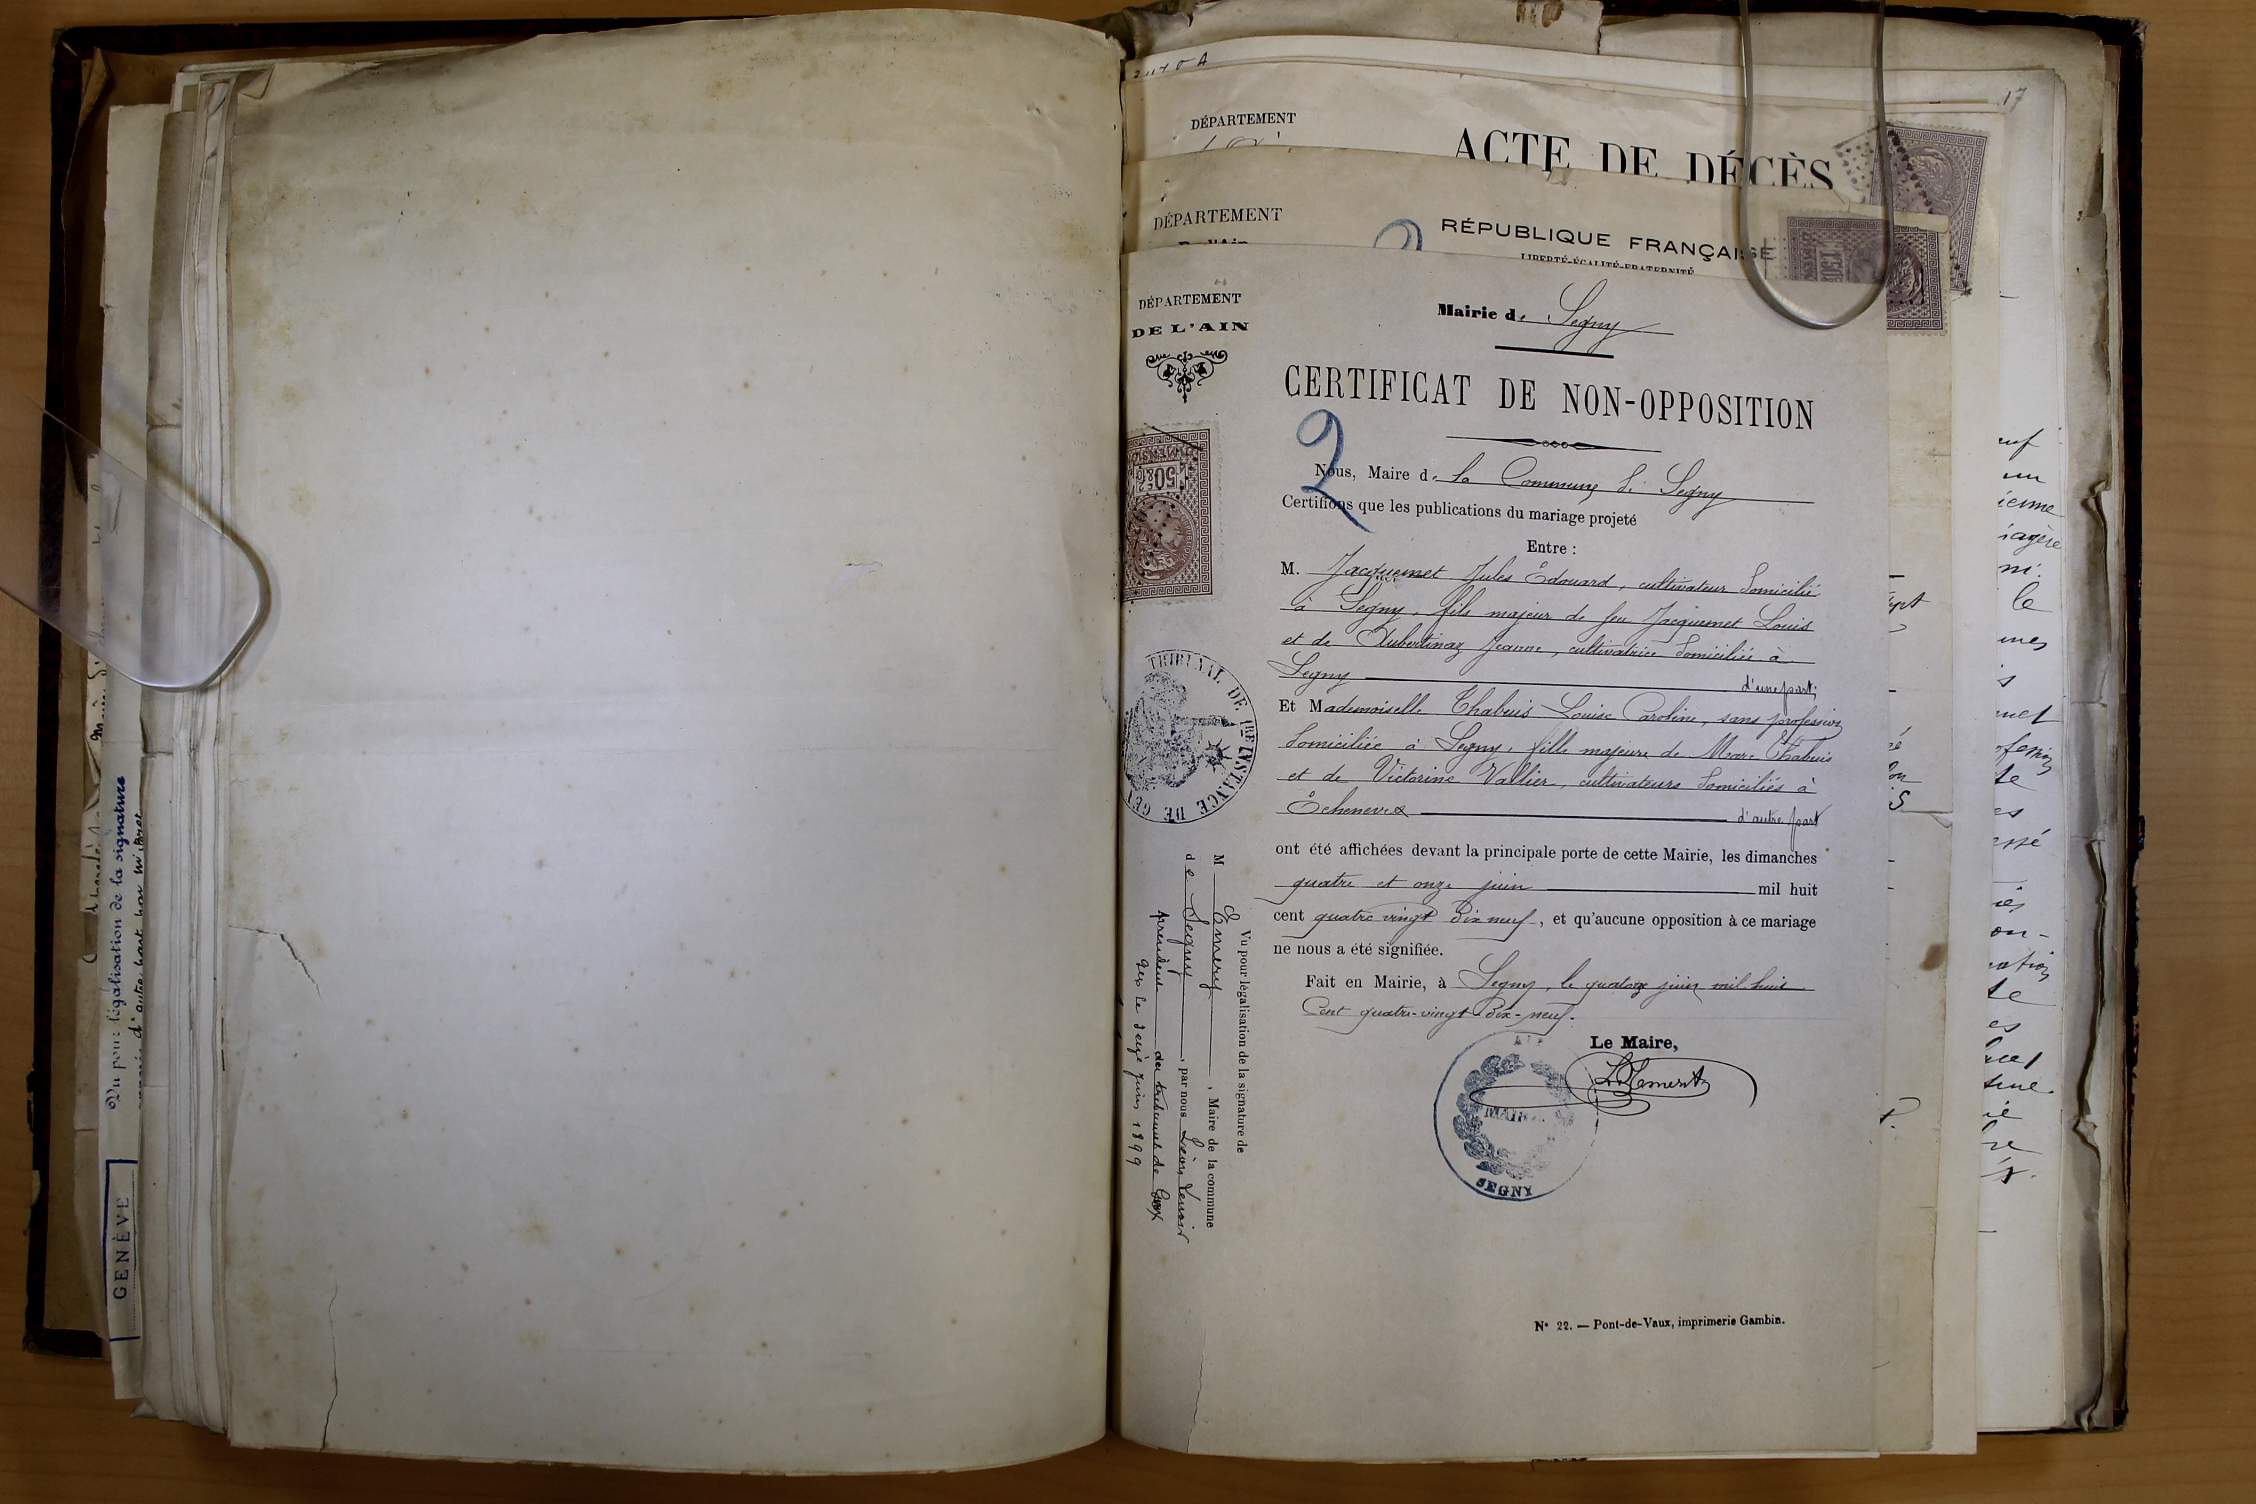 17
DÉPARTEMENT
ACTE DE DÉCÈS
DÉPARTEMENT
RÉPUBLIQUE FRANÇAISE
LIBERTÉ-ÉGALITÉ-FRATERNITÉ
2
DÉPARTEMENT
DE L'AIN
Mairie de Segny
CERTIFICAT DE NON-OPPOSITION
2
Nous, Maire de la Commune de Segny
Certifions que les publications du mariage projeté
Entre :
M. Jacquemet Jules Edouard, cultivateur domicilié
à Segny, fils majeur de feu Jacquemet Louis
et de Aubertinaz Jeanne, cultivatrice domiciliée à
Segny d'une part;
Et Mademoiselle Chabuis Louise Caroline, sans profession
domiciliée à Segny, fille majeure de Marc Chabuis
et de Victorine Vallier, cultivateurs domiciliés à
Echenevex d'autre part
ont été affichées devant la principale porte de cette Mairie, les dimanches
quatre et onze juin mil huit
cent quatre vingt dix neuf, et qu'aucune opposition à ce mariage
ne nous a été signifiée.
Fait en Mairie, à Segny, le quatorze juin mil huit
Cent quatre-vingt-dix-neuf.
Le Maire,
MAIRIE
SEGNY
N° 22. — Pont-de-Vaux, imprimerie Gambin.
TRIBUNAL DE 1RE INSTANCE DE GEX
Vu pour légalisation de la signature de
M Emery, Maire de la commune
de Segny, par nous Léon
président du tribunal de Gex
Gex le seize juin 1899
Vu pour légalisation de la signature
GENÈVE